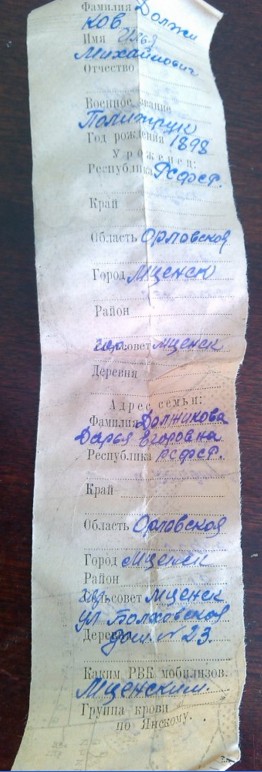 Фамилия Должи
ков
Имя Илья
Михайлович
Отчество
Военное звание
Политрук
Год рождения 1898
Уроженец:
Республика РСФСР.
Край
Область Орловской
Город Мценск
Район
гор.совет Мценск
Деревня
Адрес семьи:
Фамилия Должикова
Дарья Егоровна
Республика РСФСР.
Край
Область Орловской
Город Мценск
Район
гор.сельсовет Мценск
ул Болховская
Деревня дом. N 23.
Каким РВК мобилизов.
Мценским.
Группа крови
по Янскому.